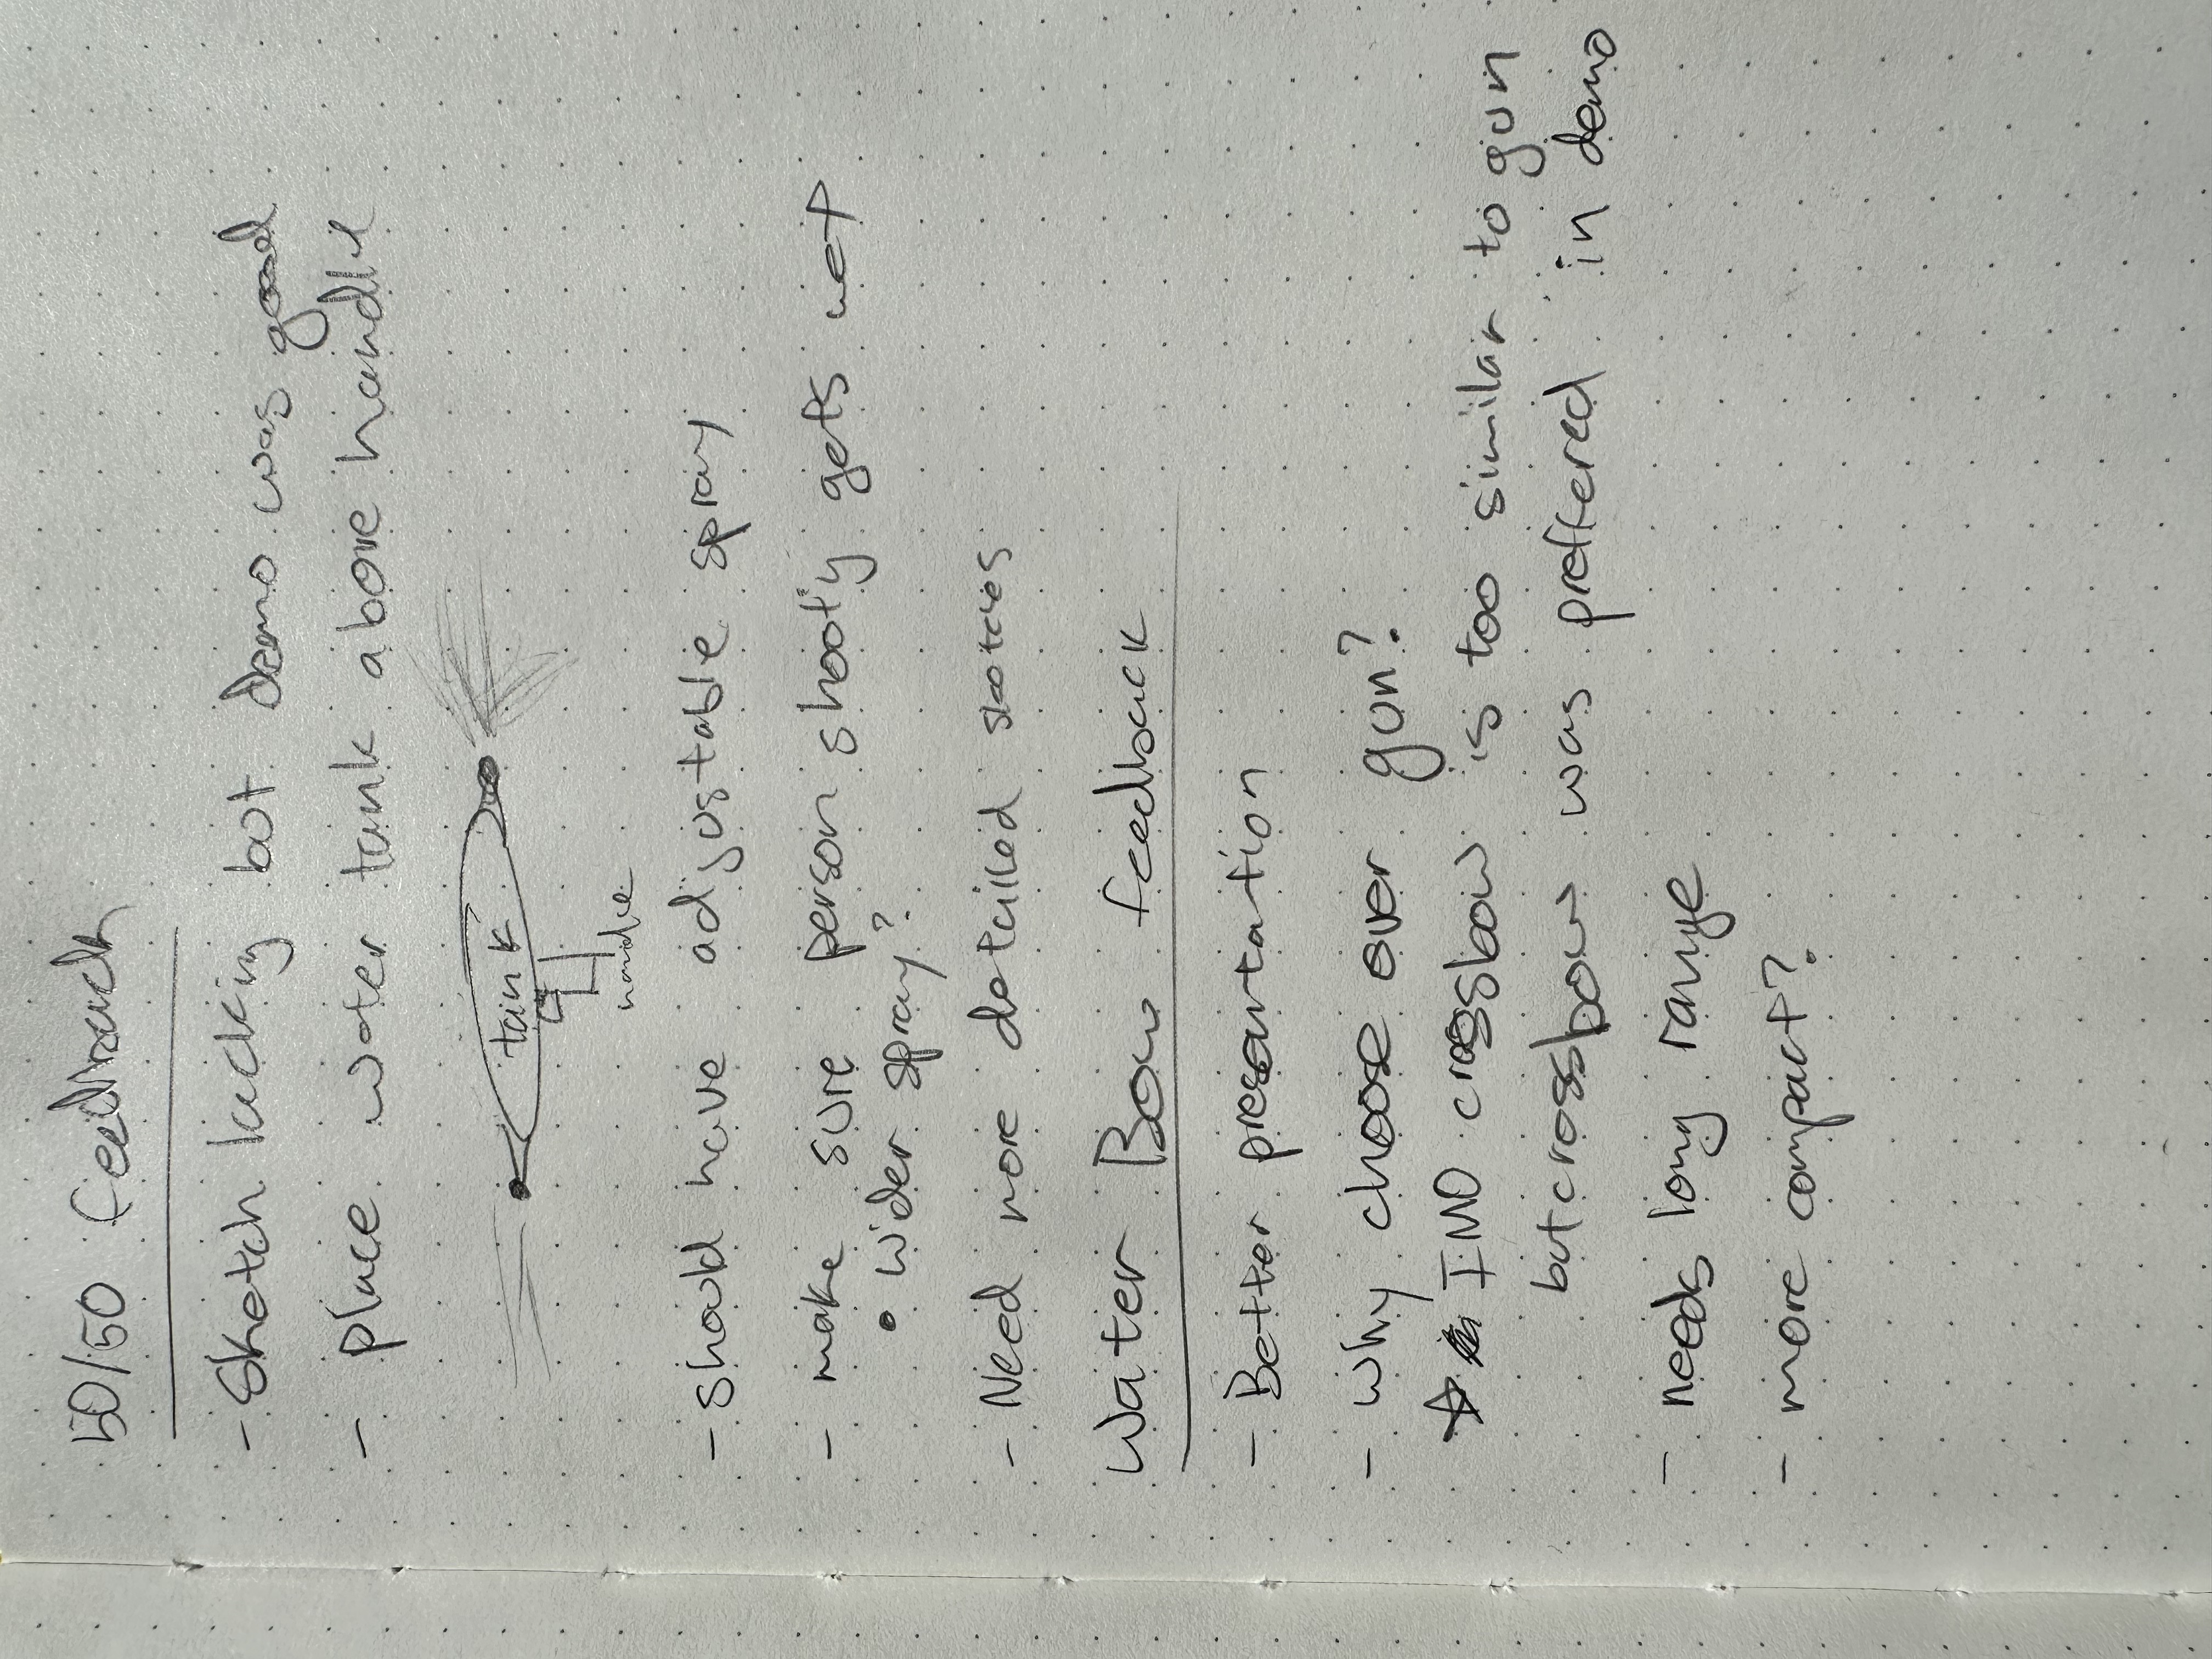 50/50 feedback
- Sketch lacking but demo was good
- place water tank above handle
tank
handle
- should have adjustable spray
- make sure person shooting gets wet
• wider spray?
- Need more detailed sketches
Water Bow feedback
- Better presentation
- why choose over gun?
☆ IMO crossbow is too similar to gun
but crossbow was preffered in demo
- needs long range
- more compact?